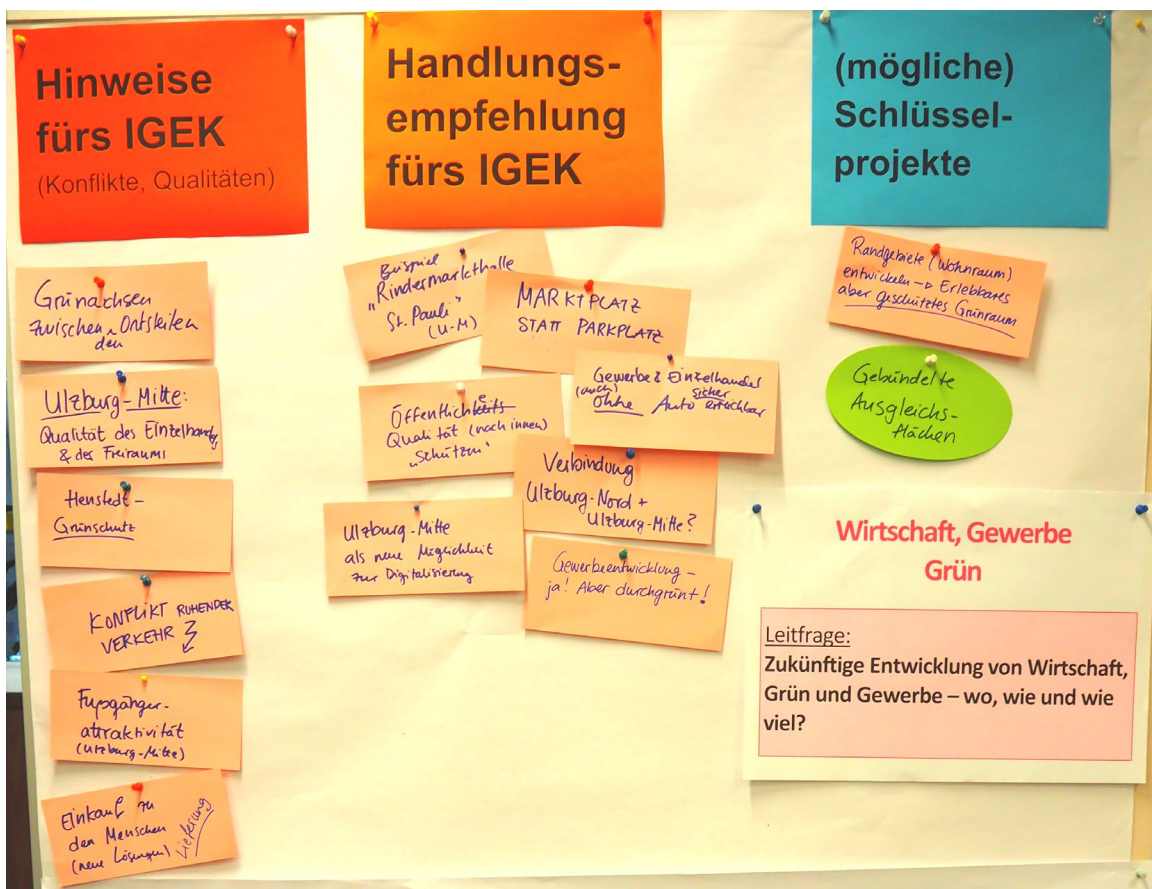 Hinweise
fürs IGEK
(Konflikte, Qualitäten)
Grünachsen
zwischen den Ortsteilen
Ulzburg-Mitte:
Qualität des Einzelhandels
& des Freiraums
Henstedt-
Grünschutz
KONFLIKT RUHENDER
VERKEHR
Fußgänger-
attraktivität
(Ulzburg-Mitte)
Einkauf zu
den Menschen
(neue Lösungen)
Lieferung
Handlungs-
empfehlung
fürs IGEK
Beispiel
„Rindermarkthalle
St. Pauli"
(U-M)
MARKTPLATZ
STATT PARKPLATZ
Gewerbe & Einzelhandel
(auch) sicher
Ohne Auto erreichbar
Öffentlichkeits
Qualität (nach innen)
„schützen"
Verbindung
Ulzburg-Nord +
Ulzburg-Mitte?
Ulzburg-Mitte
als neue Möglichkeit
zur Digitalisierung
Gewerbeentwicklung –
ja! Aber durchgrünt!
(mögliche)
Schlüssel-
projekte
Randgebiete (Wohnraum)
entwickeln → Erlebbares
aber geschütztes Grünraum
Gebündelte
Ausgleichs-
flächen
Wirtschaft, Gewerbe
Grün
Leitfrage:
Zukünftige Entwicklung von Wirtschaft,
Grün und Gewerbe – wo, wie und wie
viel?